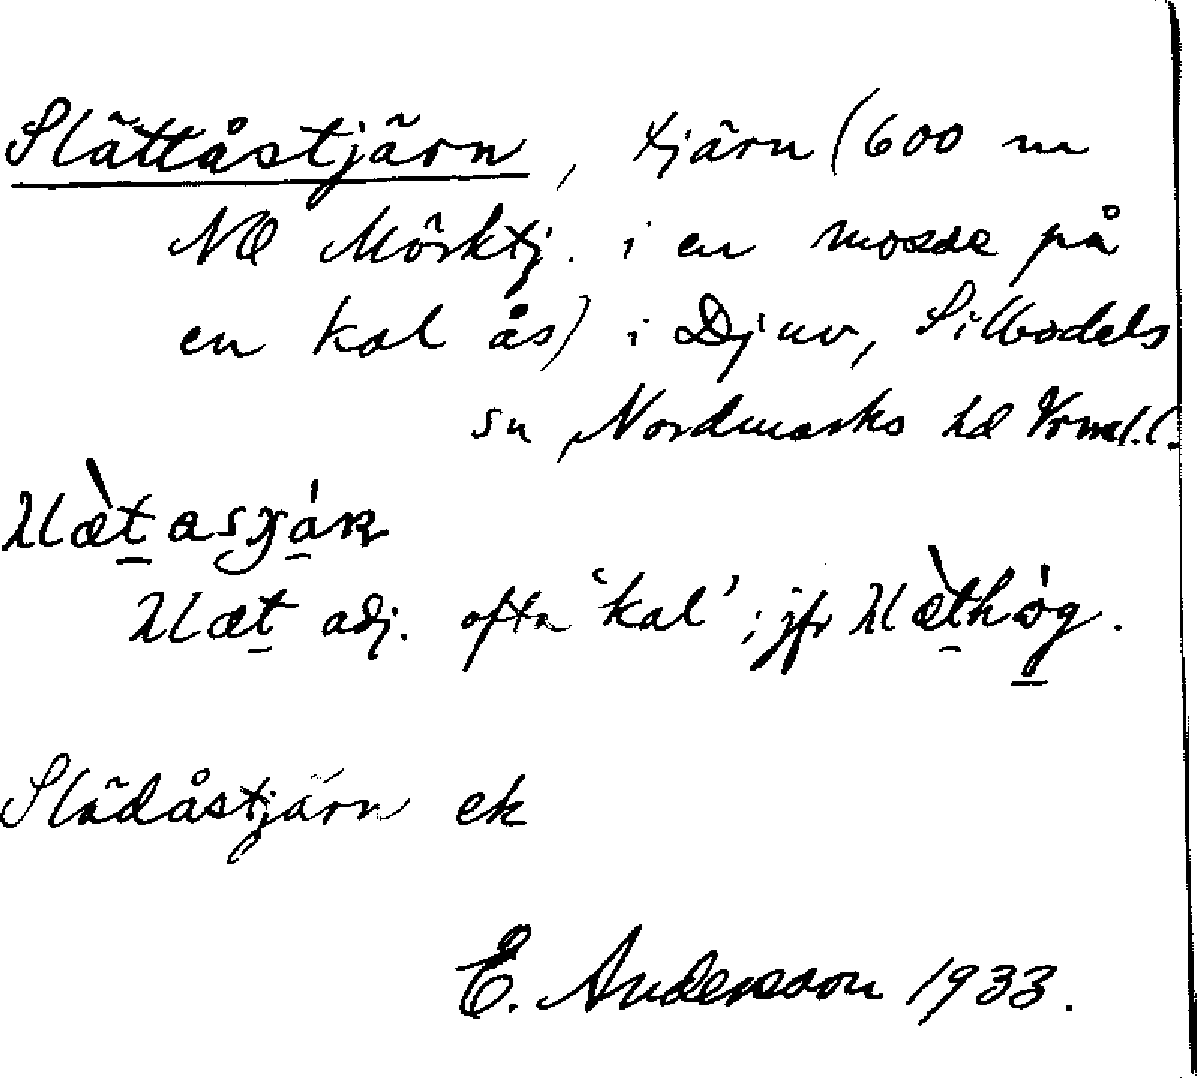 Slättåstjärn, tjärn (600 m
NO Mörktj. i en mosse på
en kal ås) i Djuv, Sillbodals
sn, Nordmarks hd Vrml.l.
adj. ofta 'kal'; jfr
Slädåstjärn ek
E. Andersson 1933.